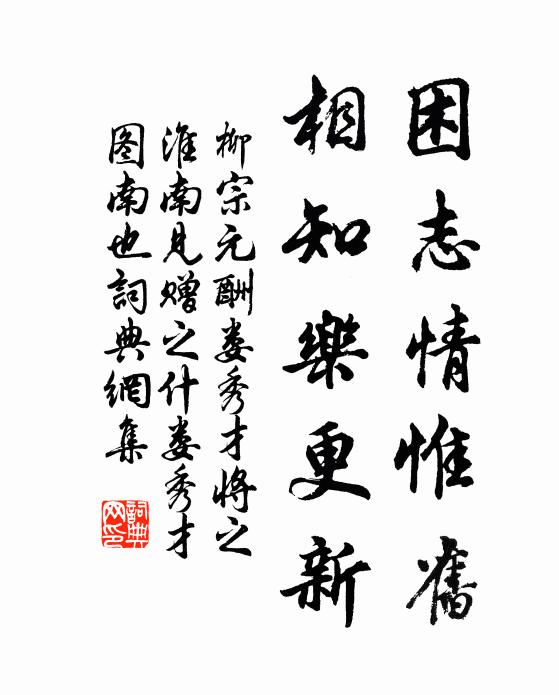 困志情惟舊
相知樂更新
柳宗元酬娄秀才將之
淮南見贈之什娄秀才
图南也詞典網集
詞典网印